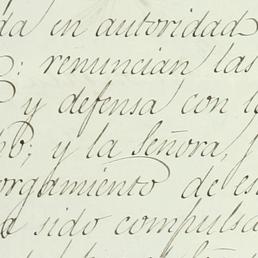 da en autoridad
: renuncian las
y defensa con
; y la Señora,
orgamiento de es
sido compulsa